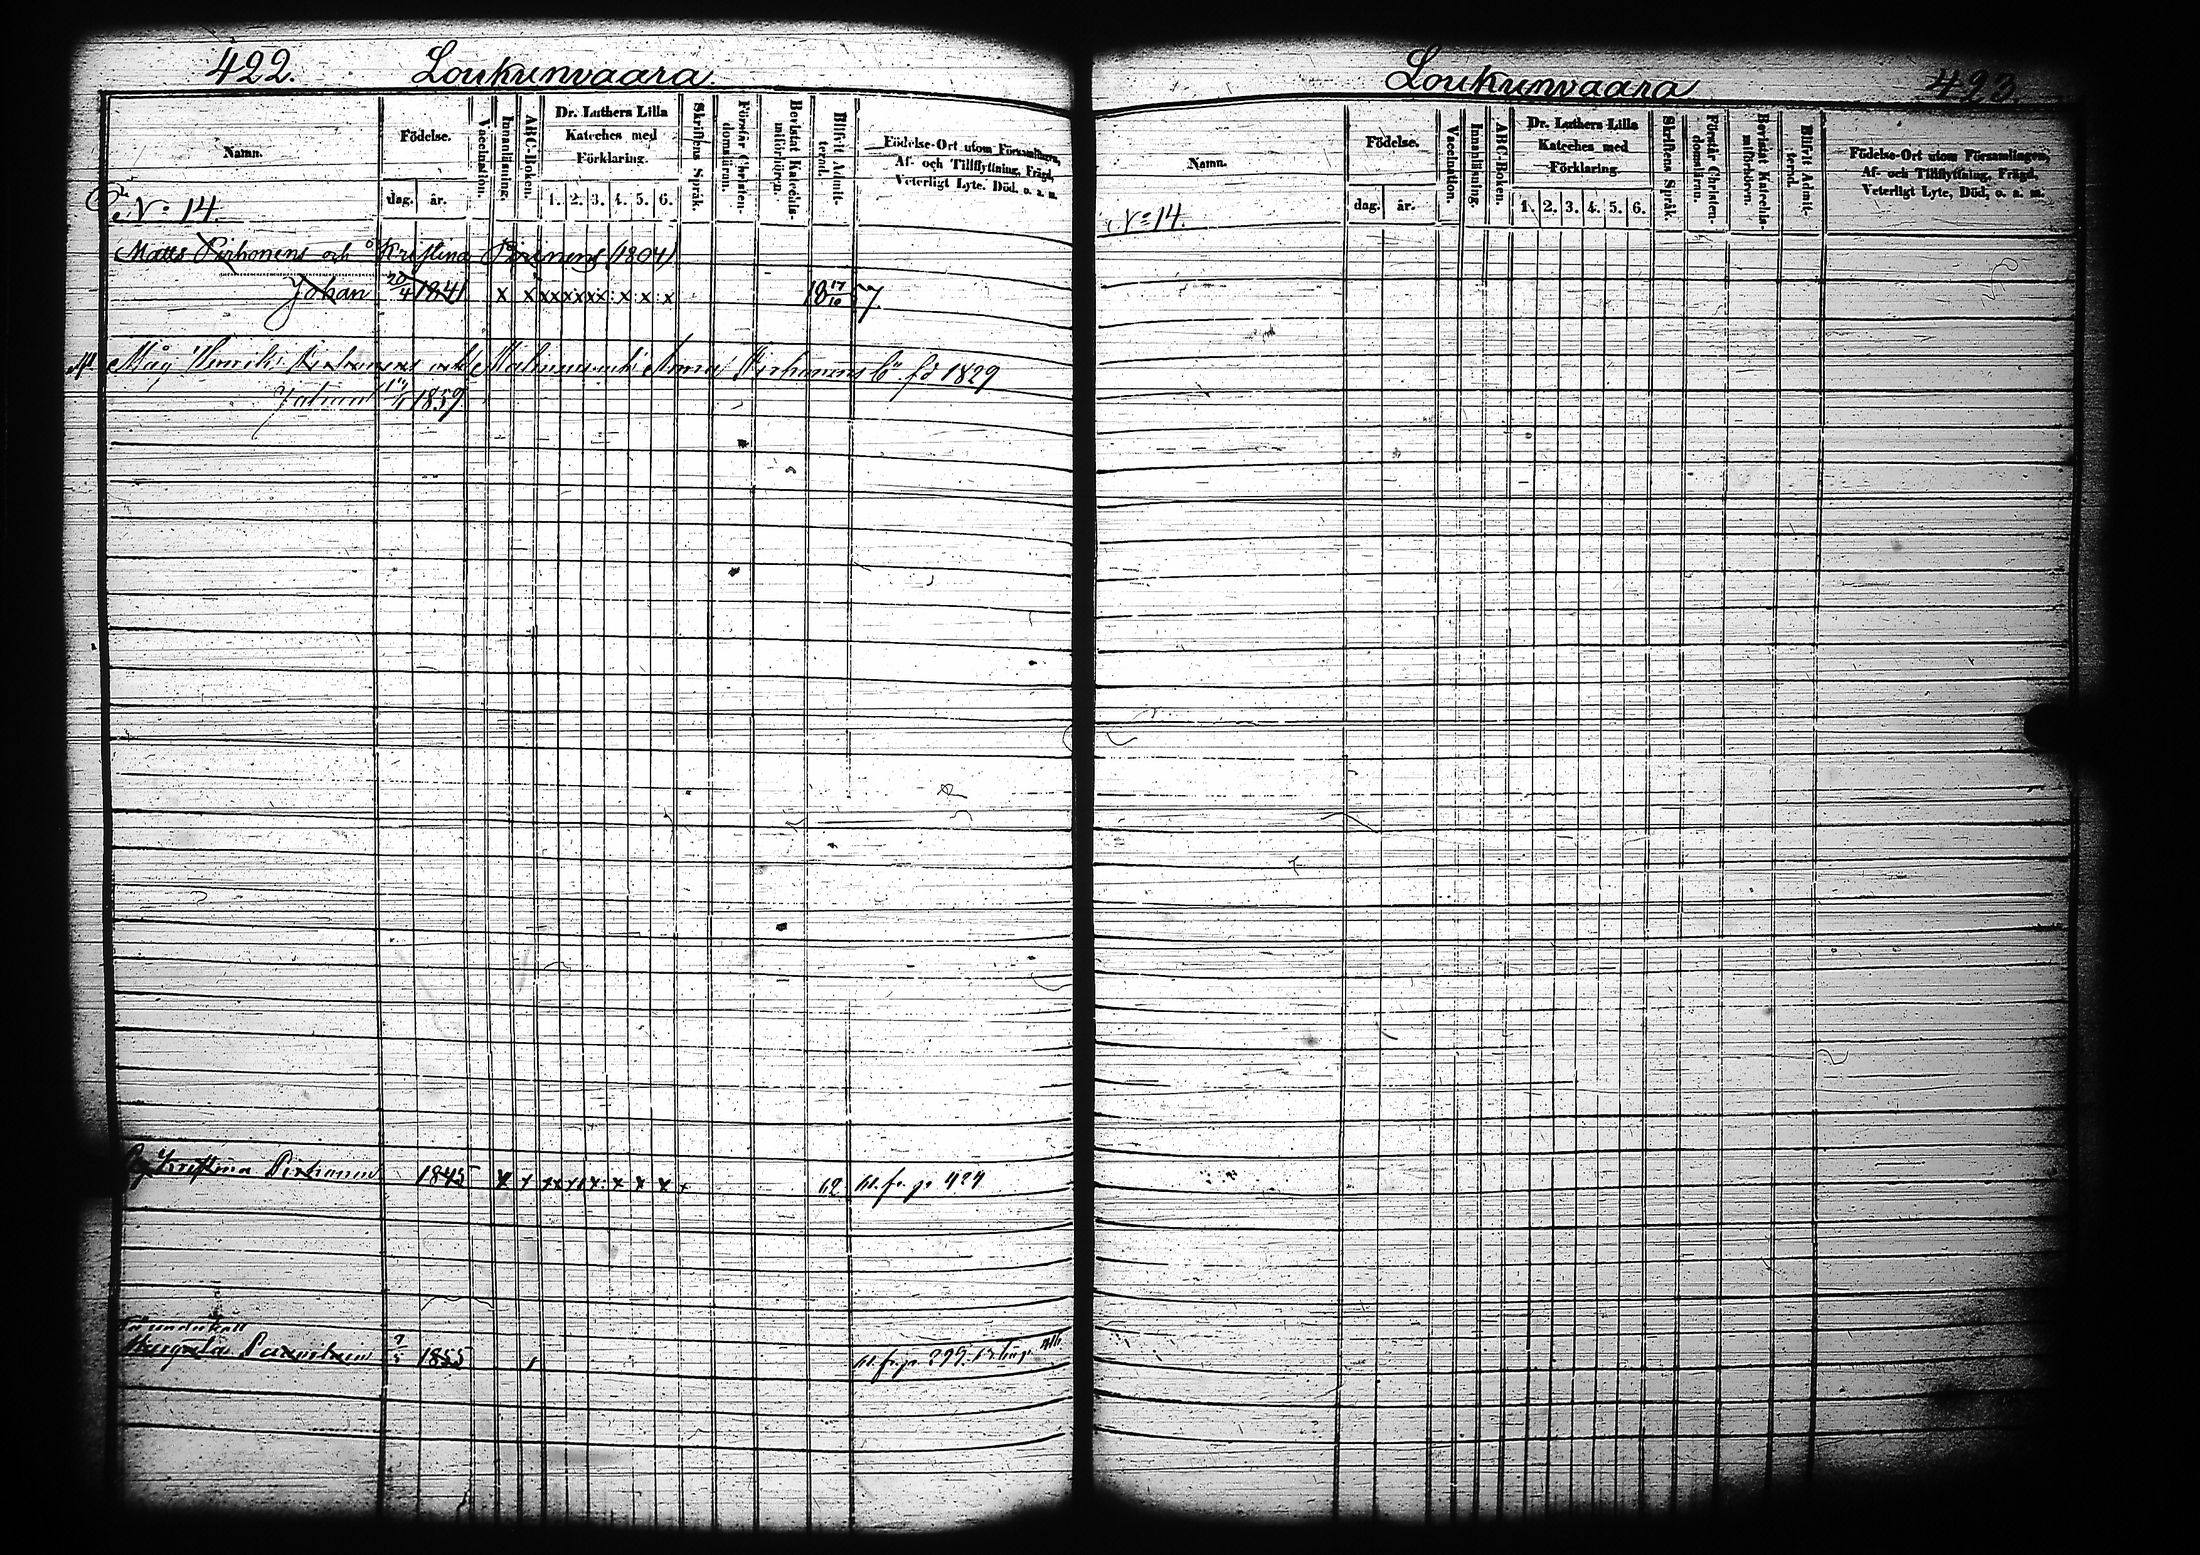 422. Loukunvaara
Namn.
Födelse.
dag. år.
Vaccination.
Innanläsning.
ABC-Boken.
Dr. Luthers Lilla
Kateches med
Förklaring.
1. 2. 3. 4. 5. 6.
Skriftens Språk.
Förstår Christen-
domsläran.
Bevistat Katechis-
miförhören.
Blifvit Admit-
terad.
Födelse-Ort utom Församlingen,
Af- och Tillflyttning, Frägd,
Veterligt Lyte, Död, o. a. m.
No 14.
Matts Pirhonens och Kristina Pirinens (1804)
Johan 20/4 1841 x x xx xx xx x x x 18 17/10 57
Måg Henrik och Anna Pirhonens fd 1829
1859
Kristina Pirhonen 1845 x x x x x x 62 fr. p 424
Margreta 1855 fr. p 399
Loukunvaara 423.
Namn.
Födelse.
dag. år.
Vaccination.
Innanläsning.
ABC-Boken.
Dr. Luthers Lilla
Kateches med
Förklaring
1. 2. 3. 4. 5. 6.
Skriftens Språk.
Förstår Christen-
domsläran.
Bevistat Katechis-
miförhören.
Blifvit Admit-
terad.
Födelse-Ort utom Församlingen,
Af- och Tillflyttning, Frägd,
Veterligt Lyte, Död, o. a. m.
No 14.